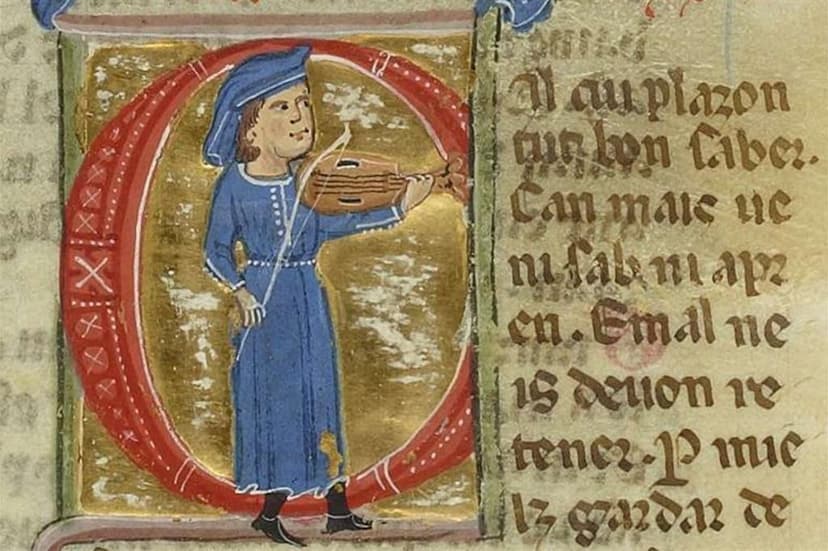 Al cui plazon
tuit bon saber.
Can mais ue
ni sab ni apr
en. E mal ne
is deuon re
tener. P mie
lz gardar de